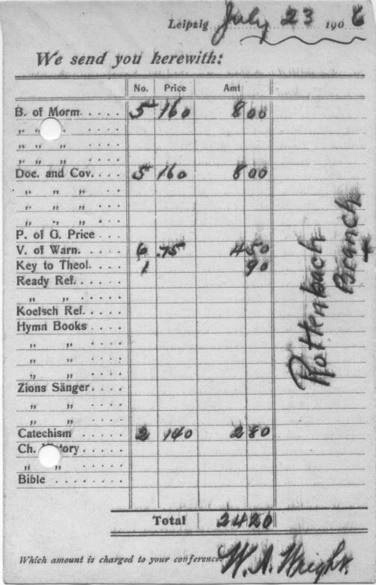 Leipzig July 23 1906
We send you herewith:
No. Price Amt
B. of Morm. . . . . 5 160 8 00
„ „ „ . . . .
„ „ „ . . . .
„ „ „ . . . .
Doc. and Cov. . . . . 5 160 8 00
„ „ „ . . . .
„ „ „ . . . .
„ „ „ . . . .
P. of G. Price . . . .
V. of Warn. . . . . 6 .75 4 50
Key to Theol. . . . . 1 90
Ready Ref. . . . .
„ „ . . . .
Koelsch Ref. . . . .
Hymn Books . . . .
„ „ . . . .
„ „ . . . .
„ „ . . . .
Zions Sänger. . . . .
„ „ . . . .
„ „ . . . .
Catechism . . . . . 2 140 2 80
Ch. History . . . .
„ „ . . . .
Bible . . . . . . . .
Total 24 20
Which amount is charged to your conference.
W. A. Wright.
Rottenbach
Branch